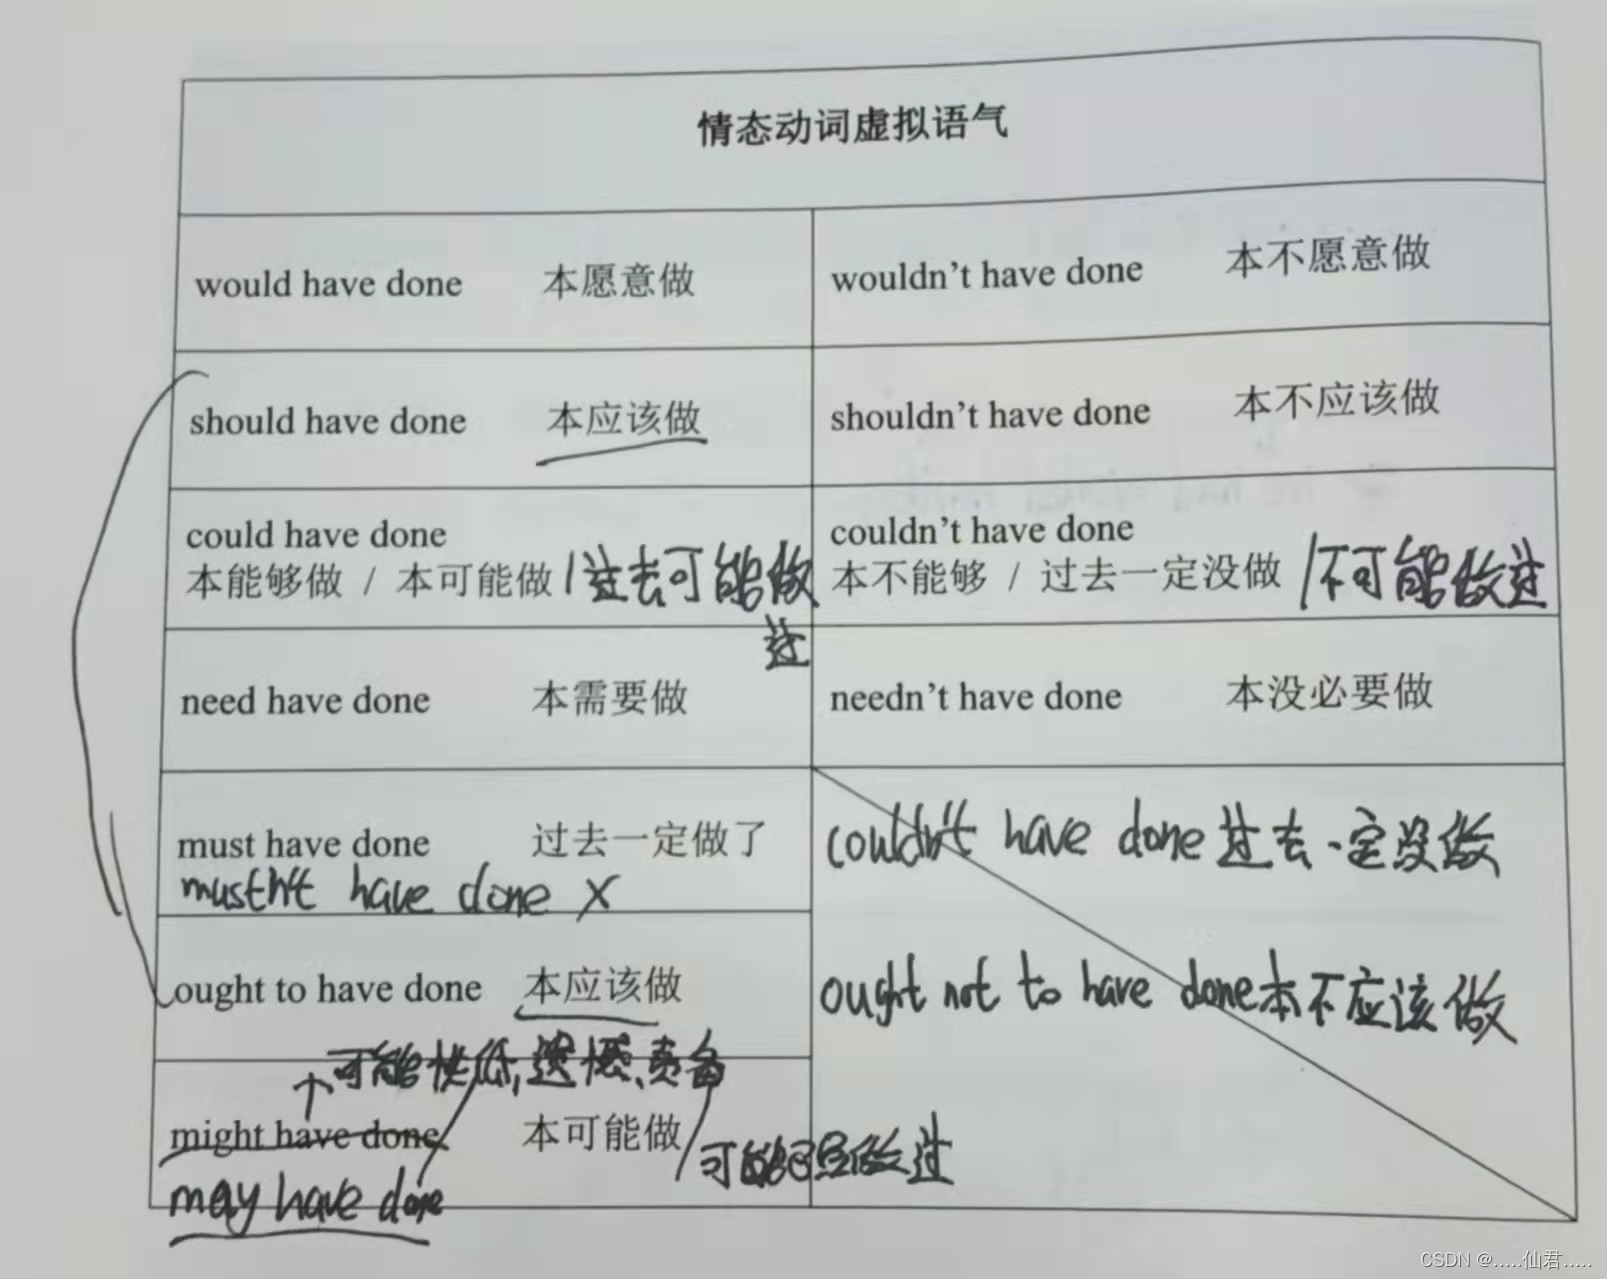 情态动词虚拟语气
would have done 本愿意做
wouldn't have done 本不愿意做
should have done 本应该做
shouldn't have done 本不应该做
could have done
本能够做 / 本可能做 / 过去可能做
过
couldn't have done
本不能够 / 过去一定没做 / 不可能做过
need have done 本需要做
needn't have done 本没必要做
must have done 过去一定做了
mustn't have done X
couldn't have done 过去一定没做
ought to have done 本应该做
ought not to have done 本不应该做
可能性低, 遗憾、责备
might have done 本可能做 / 可能已经做过
may have done
CSDN @.....仙君.....